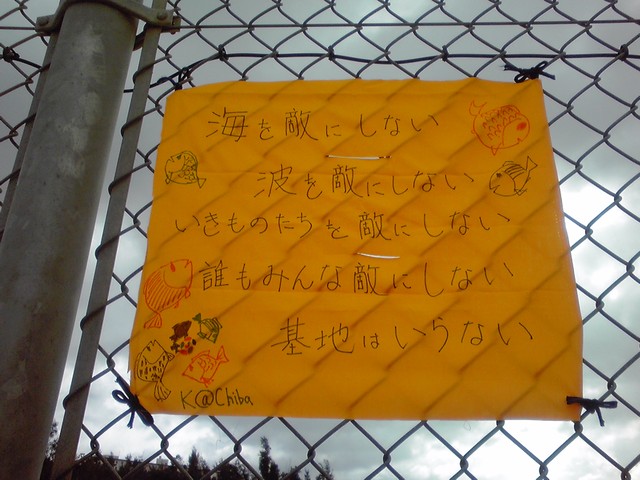 海を敵にしない
波を敵にしない
いきものたちを敵にしない
誰もみんな敵にしない
基地はいらない
K@Chiba